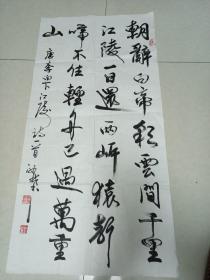 朝辭白帝彩雲間千里
江陵一日還兩岸猿聲
啼不住輕舟已過萬重
山
唐李白下江陵詩一首